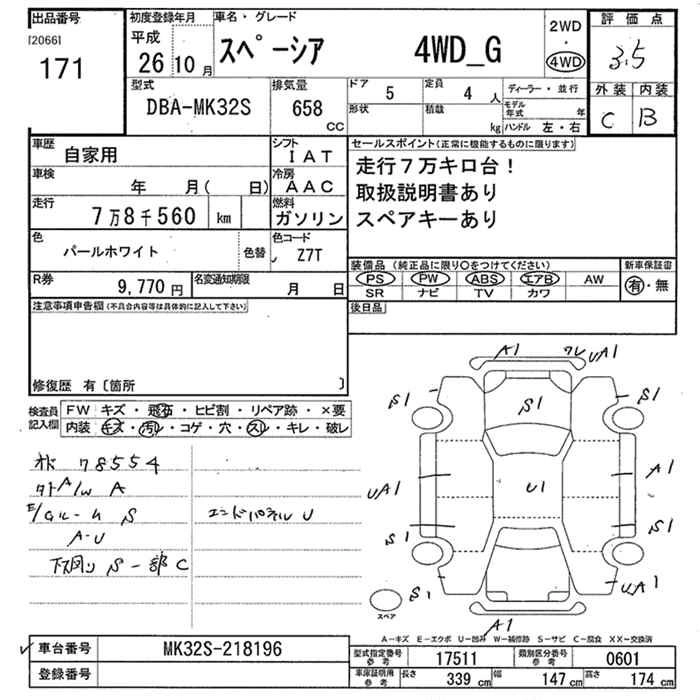 出品番号
[2066]
171
初度登録年月
平成
26 10 月
車名・グレード
スペーシア 4WD_G
2WD
・
4WD
評価点
3.5
外装 内装
C B
型式
DBA-MK32S
排気量
658
CC
ドア 5
定員 4 人
形状
積載 kg
ディーラー・並行
モデル年式 年
ハンドル 左・右
車歴 自家用
シフト IAT
車検 年 月( 日)
冷房 AAC
走行 7万8千560 km
燃料 ガソリン
色 パールホワイト 色替
色コード Z7T
R券 9,770 円
名変通知期限 月 日
セールスポイント(正常に機能するものに限ります)
走行7万キロ台!
取扱説明書あり
スペアキーあり
装備品(純正品に限り○をつけてください)
PS PW ABS エアB AW
SR ナビ TV カワ
新車保証書
有・無
後日品
注意事項申告欄(不具合内容等は具体的に記入して下さい)
修復歴 有〔箇所 〕
検査員記入欄
FW キズ・飛石・ヒビ割・リペア跡・×要
内装 キズ・汚レ・コゲ・穴・スレ・キレ・破レ
78554
A/W A
S
エンドパネル U
A-U
下回り S 一部 C
A1
ワレ
UA1
S1
S1
S1
UA1
U1
A1
S1
S1
S1
UA1
A1
スペア
A−キズ E−エクボ U−凹み W−補修跡 S−サビ C−腐食 XX−交換済
車台番号 MK32S-218196
登録番号
型式指定番号参考 17511
類別区分番号参考 0601
車庫証明用参考
長さ 339 cm
幅 147 cm
高さ 174 cm